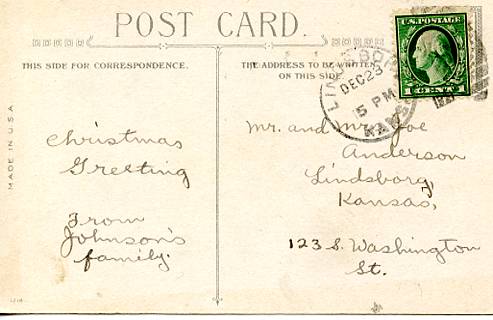 POST CARD.
THIS SIDE FOR CORRESPONDENCE.
THE ADDRESS TO BE WRITTEN
ON THIS SIDE
U.S. POSTAGE
1 CENT 1
LINDSBORG
DEC 23
5 PM
KANS
MADE IN U.S.A
Christmas
Greeting
From
Johnson's
family.
Mr. and Mrs. Joe
Anderson
Lindsborg,
Kansas,
123 S. Washington
St.